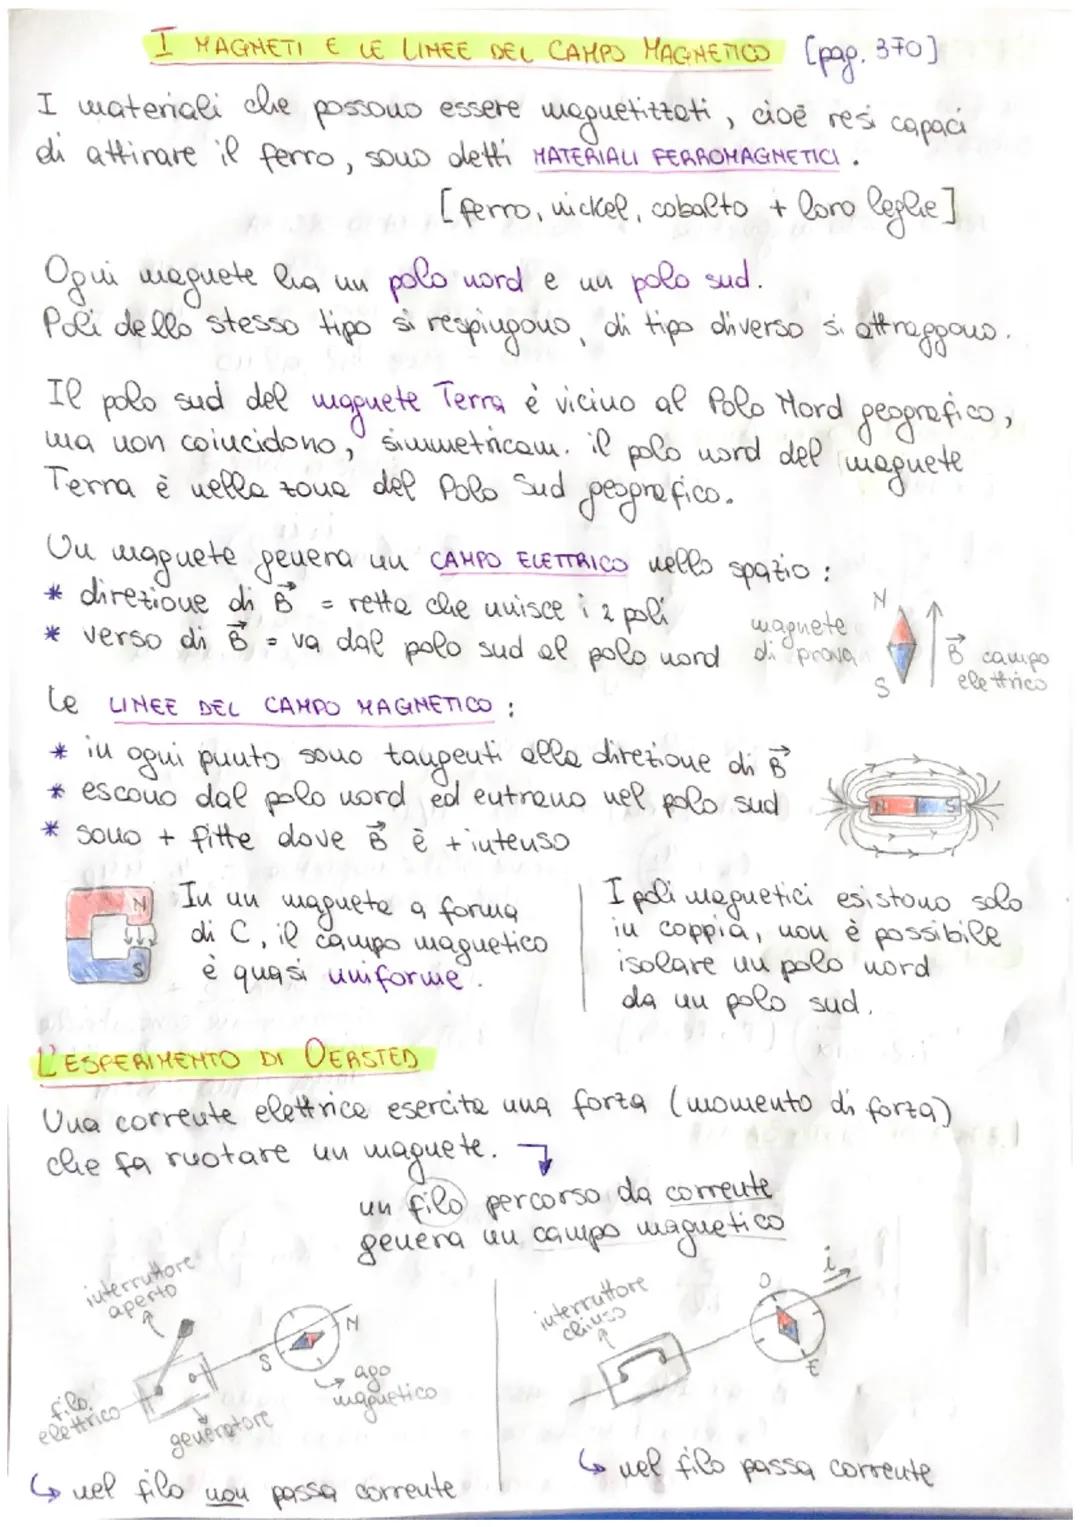 I MAGNETI E LE LINEE DEL CAMPO MAGNETICO [pag. 370]
I materiali che possono essere magnetizzati, cioè resi capaci
di attirare il ferro, sono detti MATERIALI FERROMAGNETICI.
[ferro, nickel, cobalto + loro leghe]
Ogni magnete ha un polo nord e un polo sud.
Poli dello stesso tipo si respingono, di tipo diverso si attraggono.
Il polo sud del magnete Terra è vicino al Polo Nord geografico,
ma non coincidono, simmetricam. il polo nord del magnete
Terra è nella zona del Polo Sud geografico.
Un magnete genera un CAMPO ELETTRICO nello spazio:
* direzione di B⃗ = retta che unisce i 2 poli
* verso di B⃗ = va dal polo sud al polo nord
magnete
di prova
N
S
B⃗ campo
elettrico
Le LINEE DEL CAMPO MAGNETICO:
* in ogni punto sono tangenti alla direzione di B⃗
* escono dal polo nord ed entrano nel polo sud
* sono + fitte dove B⃗ è + intenso
N S
N
S
In un magnete a forma
di C, il campo magnetico
è quasi uniforme.
I poli magnetici esistono solo
in coppia, non è possibile
isolare un polo nord
da un polo sud.
L'ESPERIMENTO DI OERSTED
Una corrente elettrica esercita una forza (momento di forza)
che fa ruotare un magnete.
un filo percorso da corrente
genera un campo magnetico
interruttore
aperto
N
S
ago
magnetico
filo
elettrico
generatore
nel filo non passa corrente
interruttore
chiuso
O
i
E
nel filo passa corrente